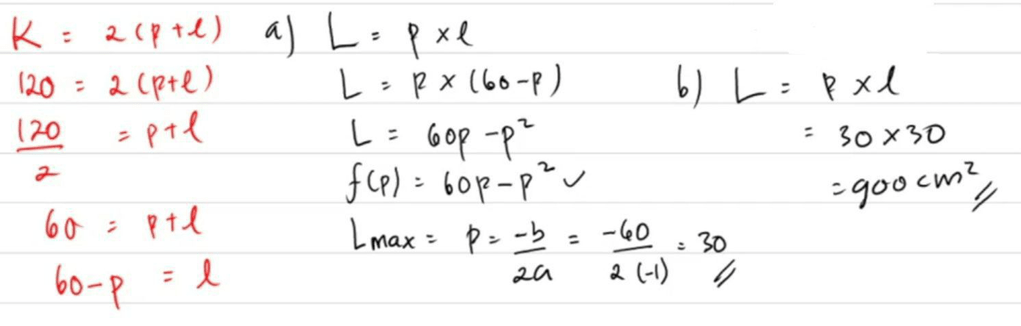 K = 2(p+l)
120 = 2(p+l)
120/2 = p+l
60 = p+l
60-p = l
a) L = p×l
L = p×(60-p)
L = 60p-p²
f(p) = 60p-p² ✓
Lmax = p = -b/2a = -60/2(-1) = 30
b) L = p×l
= 30×30
= 900 cm²